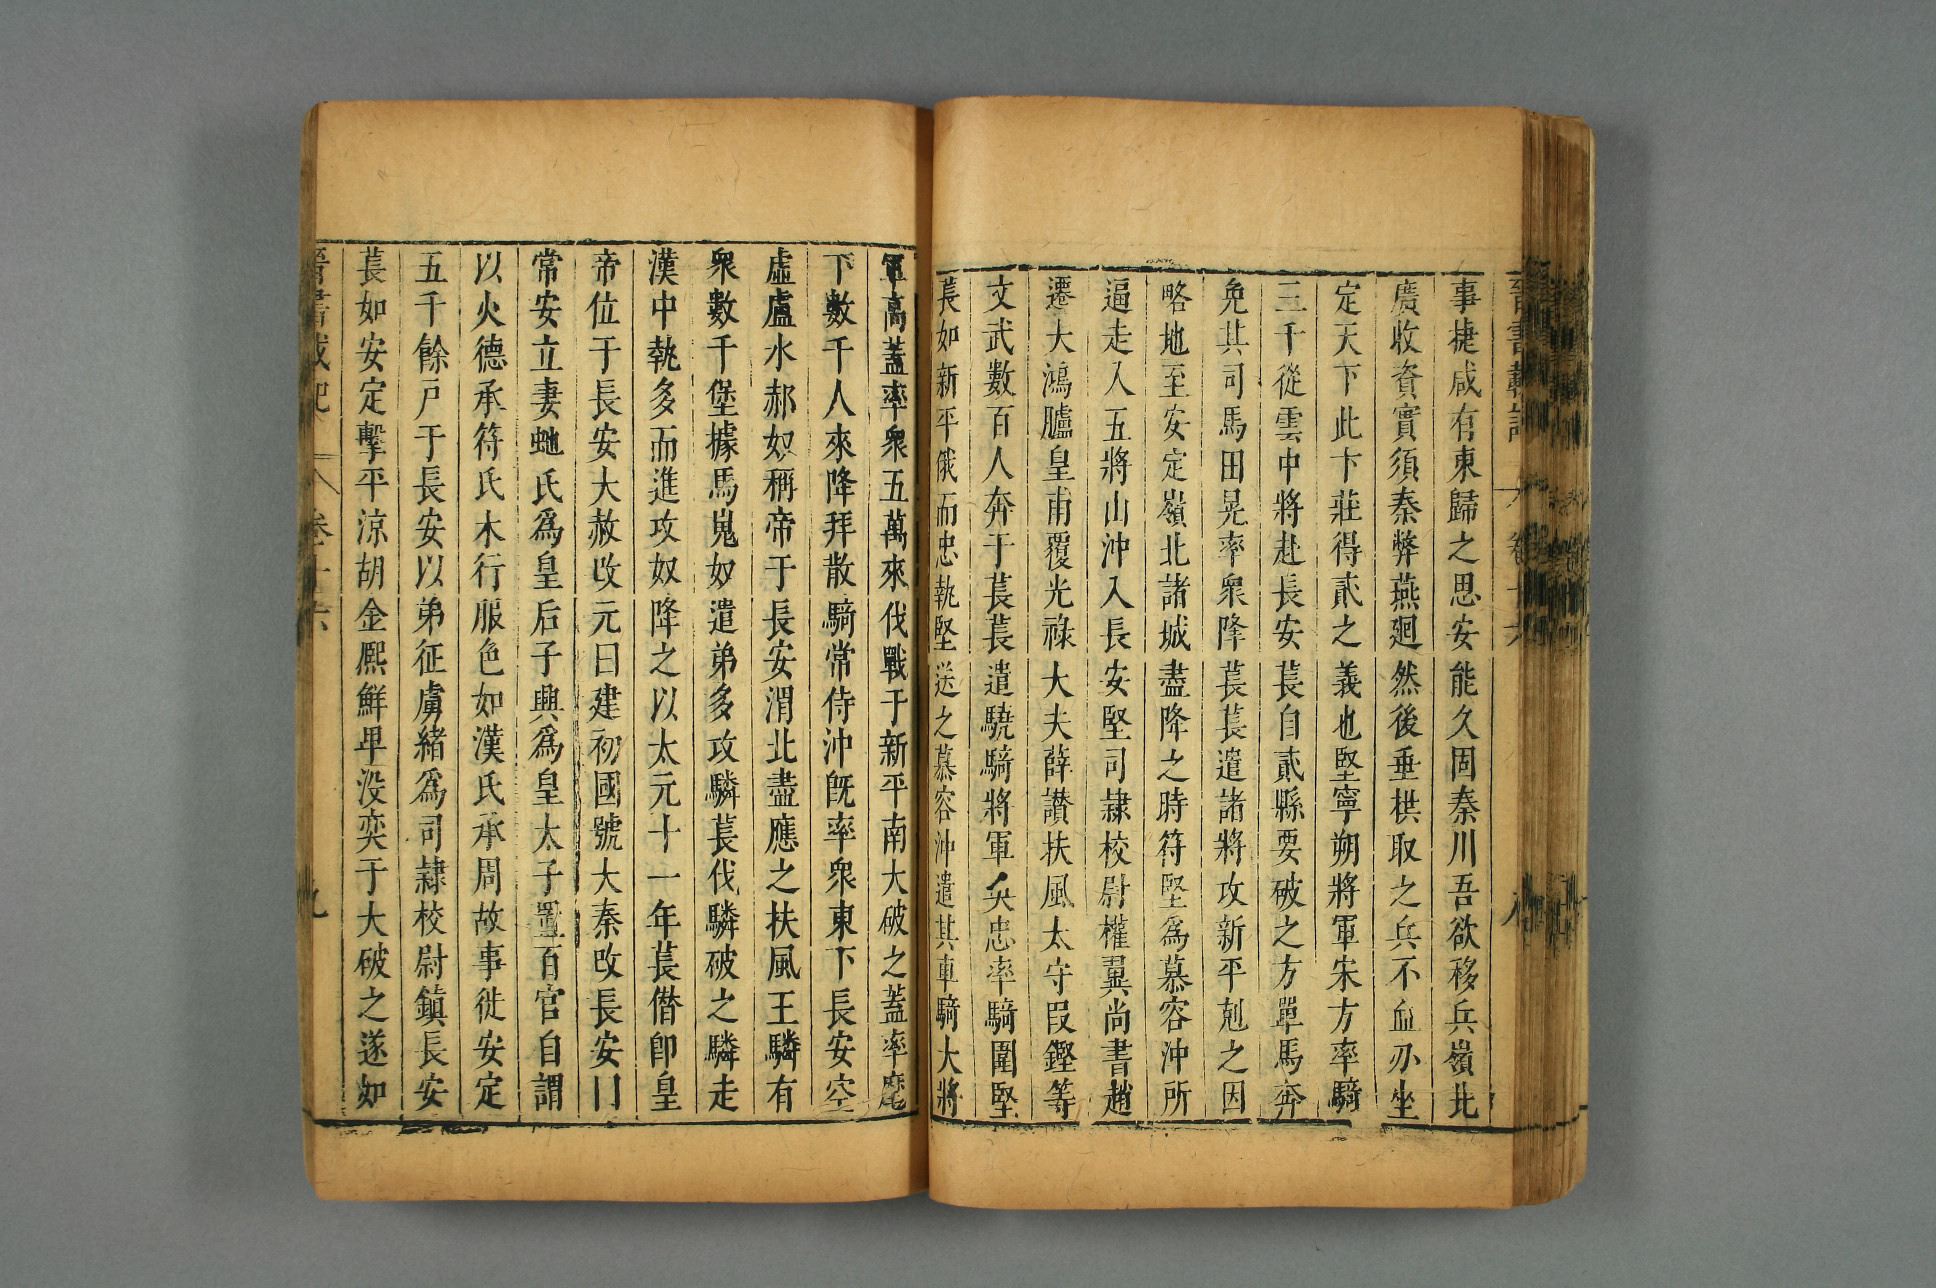 晉書載記 卷十六 八
事捷咸有東歸之思安能久固秦川吾欲移兵嶺北
廣收資實須秦弊燕廻然後垂拱取之兵不血刃坐
定天下此卞莊得貳之義也堅寧朔將軍宋方率騎
三千從雲中將赴長安萇自貳縣要破之方單馬奔
免其司馬田晃率衆降萇萇遣諸將攻新平剋之因
略地至安定嶺北諸城盡降之時符堅爲慕容沖所
逼走入五將山沖入長安堅司隷校尉權翼尚書趙
遷大鴻臚皇甫覆光祿大夫薛讃扶風太守段鏗等
文武數百人奔于萇萇遣驍騎將軍吳忠率騎圍堅
萇如新平俄而忠執堅送之慕容沖遣其車騎大將
軍高蓋率衆五萬來伐戰于新平南大破之蓋率麾
下數千人來降拜散騎常侍沖旣率衆東下長安空
虛盧水郝奴稱帝于長安渭北盡應之扶風王驎有
衆數千堡據馬嵬奴遣弟多攻驎萇伐驎破之驎走
漢中執多而進攻奴降之以太元十一年萇僭卽皇
帝位于長安大赦改元曰建初國號大秦改長安曰
常安立妻虵氏爲皇后子興爲皇太子置百官自謂
以火德承符氏木行服色如漢氏承周故事徙安定
五千餘戸于長安以弟征虜緒爲司隷校尉鎮長安
萇如安定擊平涼胡金熈鮮卑没奕于大破之遂如
晉書載記 卷十六 九